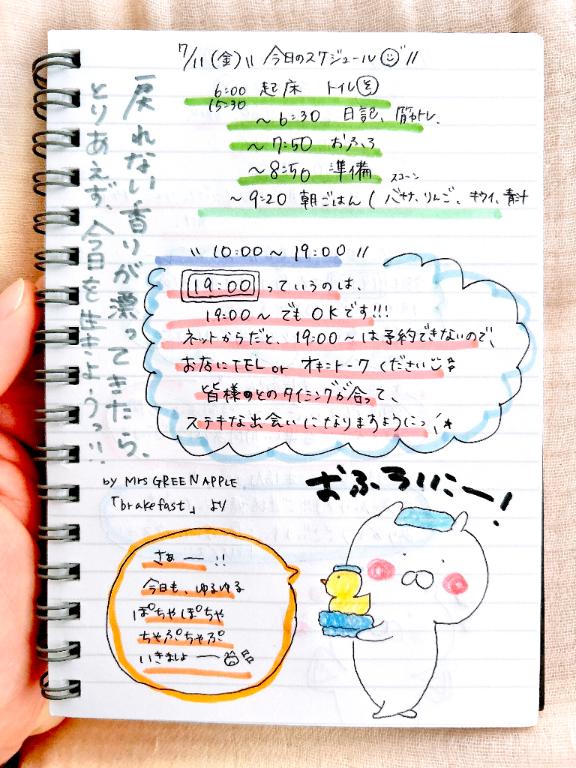 7/11(金)‖ 今日のスケジュール //
6:00 起床 トイレ
15:30
~6:30 日記、筋トレ、
~7:50 おふろ
~8:50 準備
スコーン
~9:20 朝ごはん ( バナナ、りんご、キウイ、青汁
戻れない香りが漂ってきたら、
とりあえず、今日を生きようっ!!
\\ 10:00~19:00 //
19:00 っていうのは、
19:00~ でも OKです!!!
ネットからだと、19:00~は予約できないので、
お店にTEL or オキニトーク ください
皆様とのタイミングが合って、
ステキな出会いになりますようにっ!
by Mrs GREEN APPLE
「brakefast」 より
おふろにー!
さぁー!!
今日も、ゆるゆる
ぽちゃぽちゃ
ちゃぷちゃぷ
いきましょー